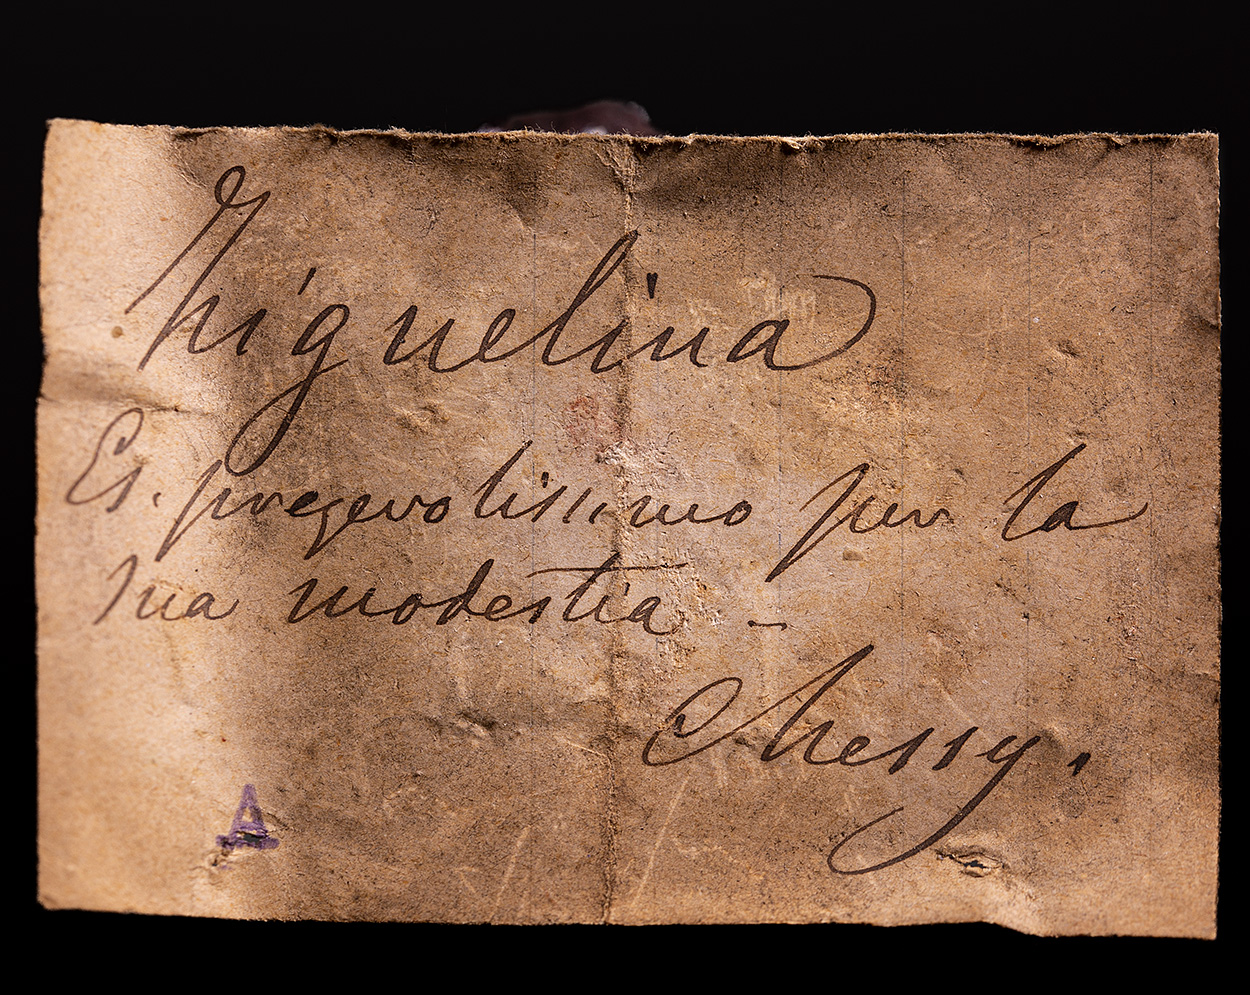 Miguelina
Es. pregevolissimo per la
sua modestia -
Chessy.
A